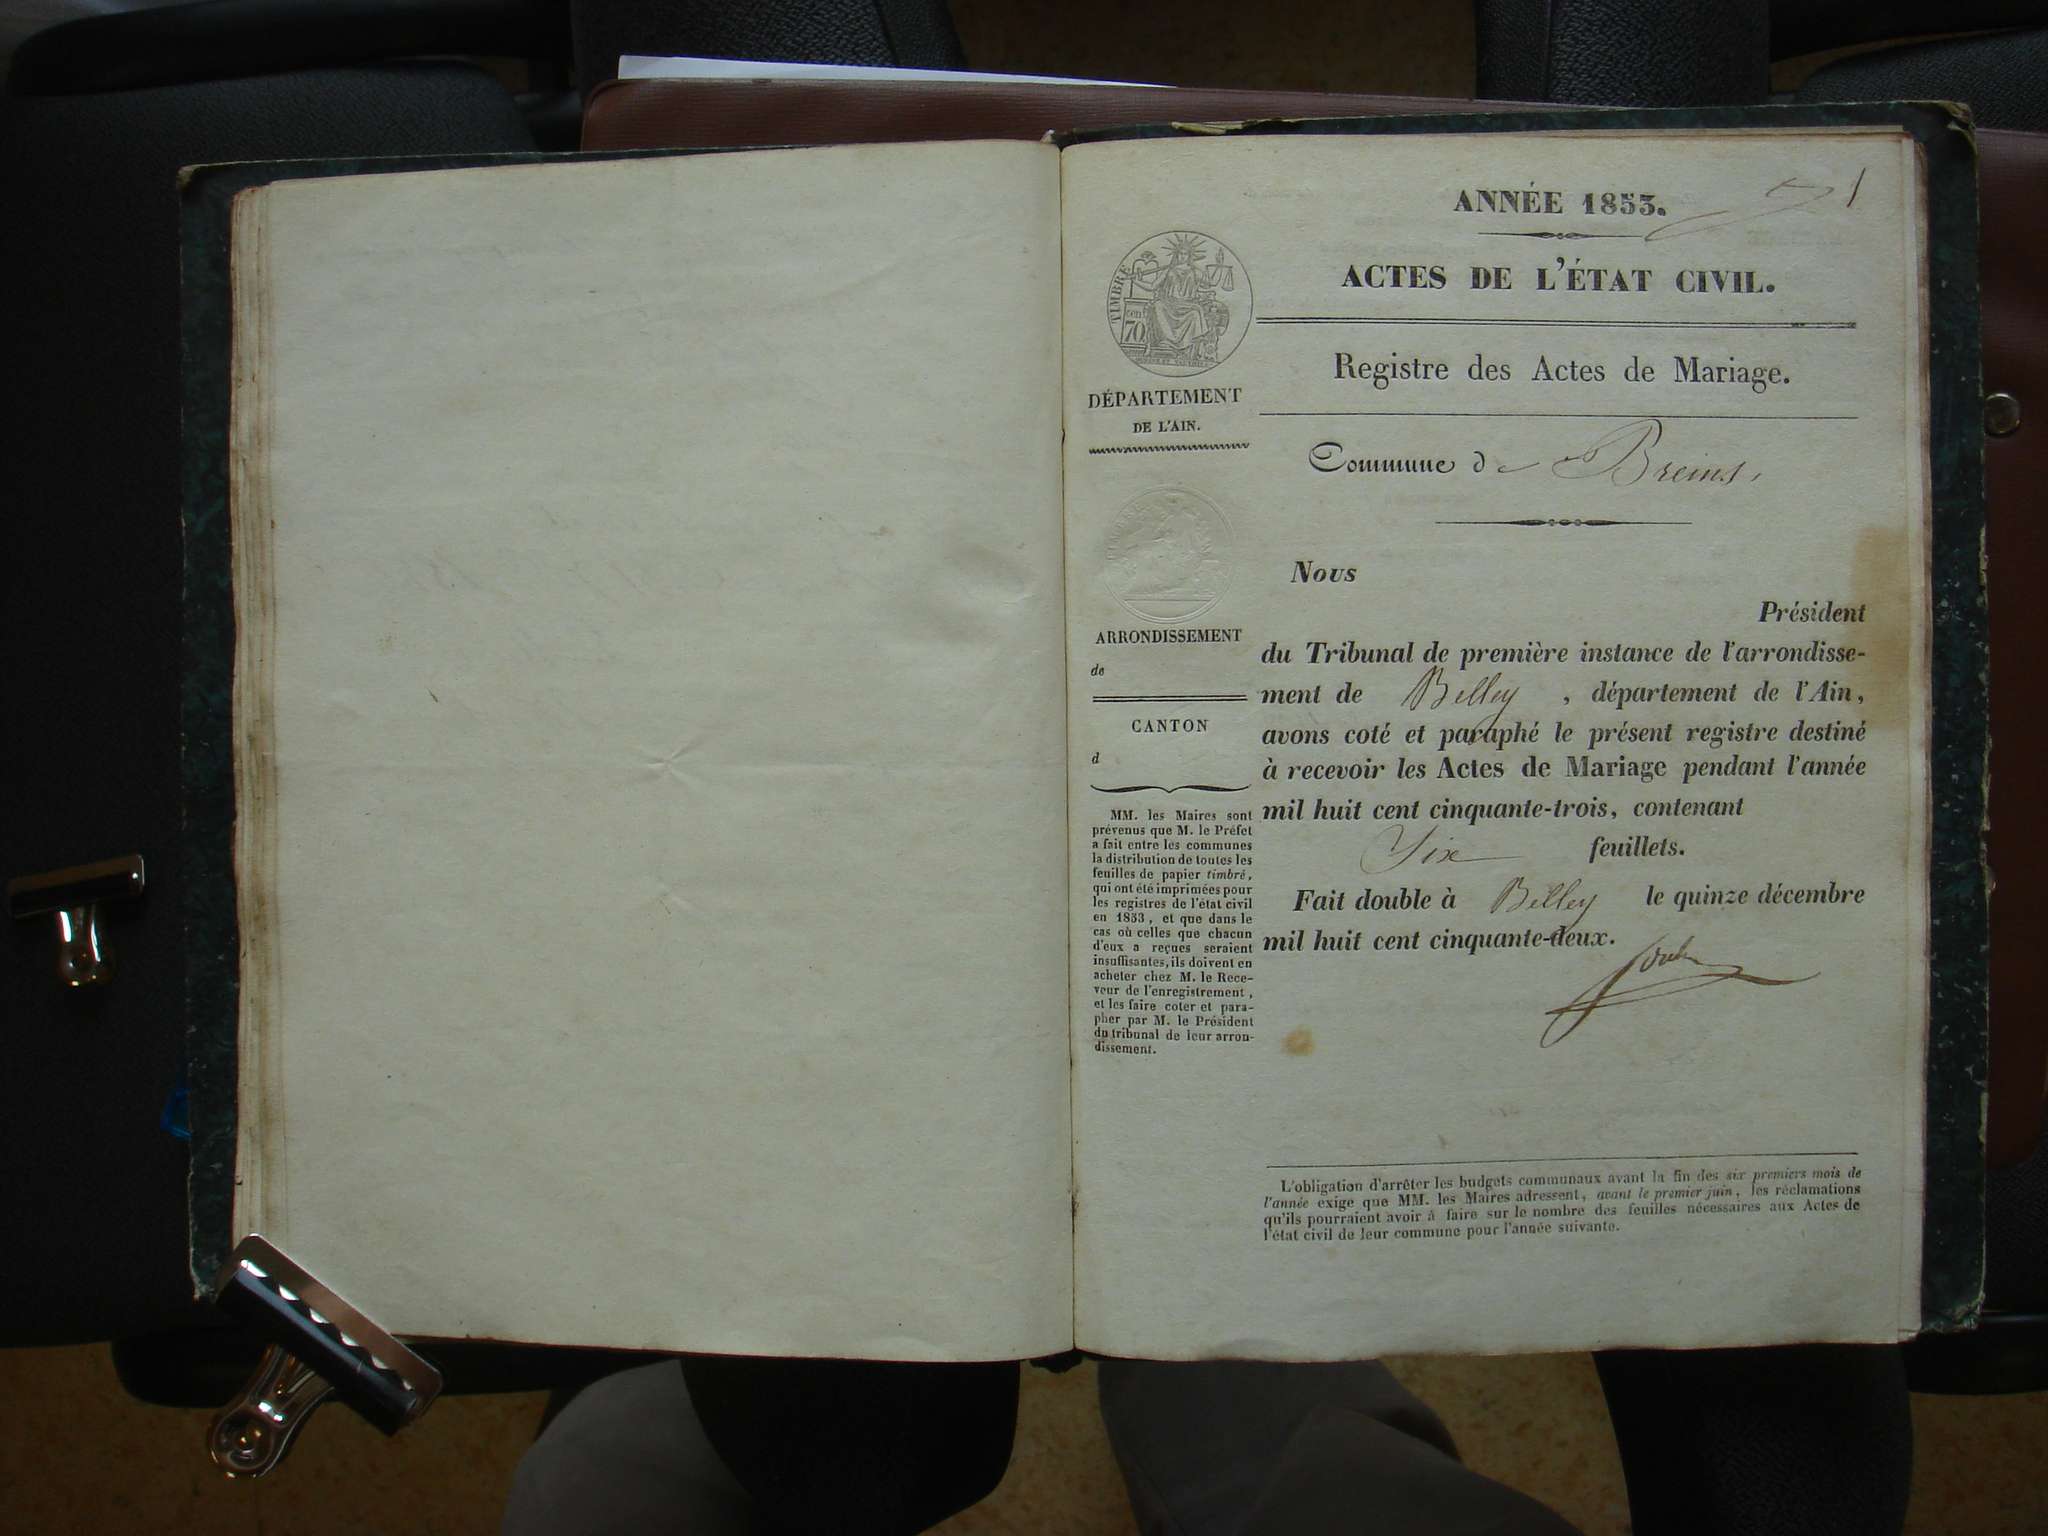 1
ANNÉE 1853.
ACTES DE L'ÉTAT CIVIL.
Registre des Actes de Mariage.
Commune de Breins,
TIMBRE
cent
70
DÉPARTEMENT
DE L'AIN.
ARRONDISSEMENT
de
CANTON
d
MM. les Maires sont
prévenus que M. le Préfet
a fait entre les communes
la distribution de toutes les
feuilles de papier timbré,
qui ont été imprimées pour
les registres de l'état civil
en 1853, et que dans le
cas où celles que chacun
d'eux a reçues seraient
insuffisantes, ils doivent en
acheter chez M. le Rece-
veur de l'enregistrement,
et les faire coter et para-
pher par M. le Président
du tribunal de leur arron-
dissement.
Nous
Président
du Tribunal de première instance de l'arrondisse-
ment de Belley, département de l'Ain,
avons coté et paraphé le présent registre destiné
à recevoir les Actes de Mariage pendant l'année
mil huit cent cinquante-trois, contenant
Six feuillets.
Fait double à Belley le quinze décembre
mil huit cent cinquante-deux.
L'obligation d'arrêter les budgets communaux avant la fin des six premiers mois de
l'année exige que MM. les Maires adressent, avant le premier juin, les réclamations
qu'ils pourraient avoir à faire sur le nombre des feuilles nécessaires aux Actes de
l'état civil de leur commune pour l'année suivante.